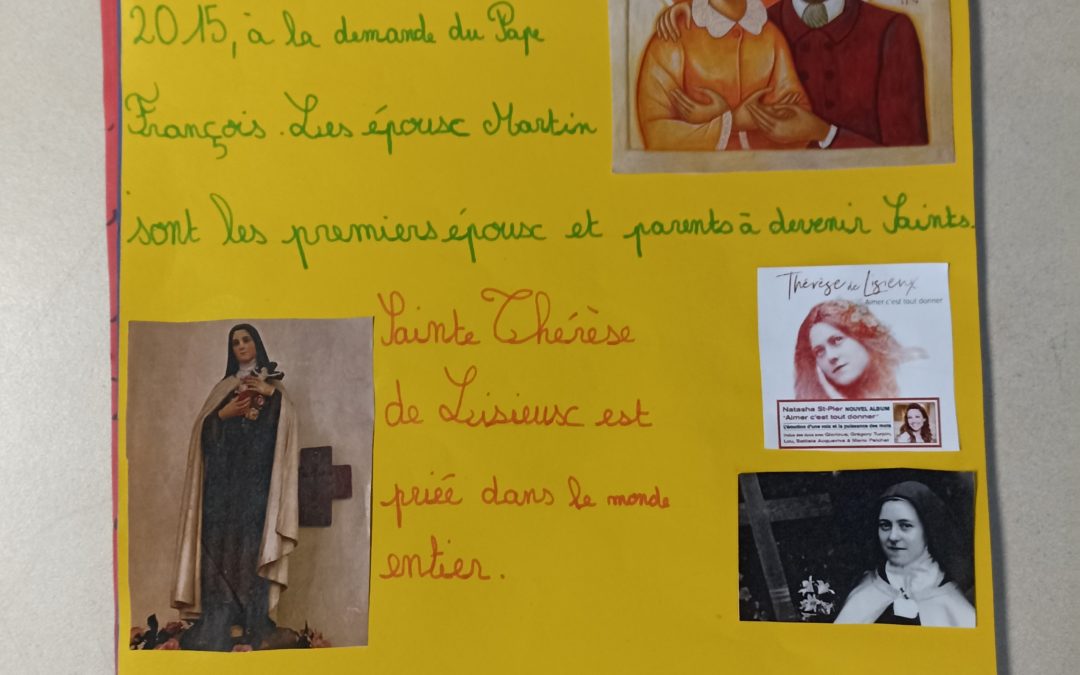 2015, à la demande du Pape
François. Les époux Martin
sont les premiers époux et parents à devenir Saints.
Thérèse de Lisieux
Aimer c'est tout donner
Sainte Thérèse
de Lisieux est
priée dans le monde
entier.
Natasha St-Pier NOUVEL ALBUM
"Aimer c'est tout donner"
L'émotion d'une voix et la puissance des mots
Inclus des duos avec Glorious, Grégory Turpin,